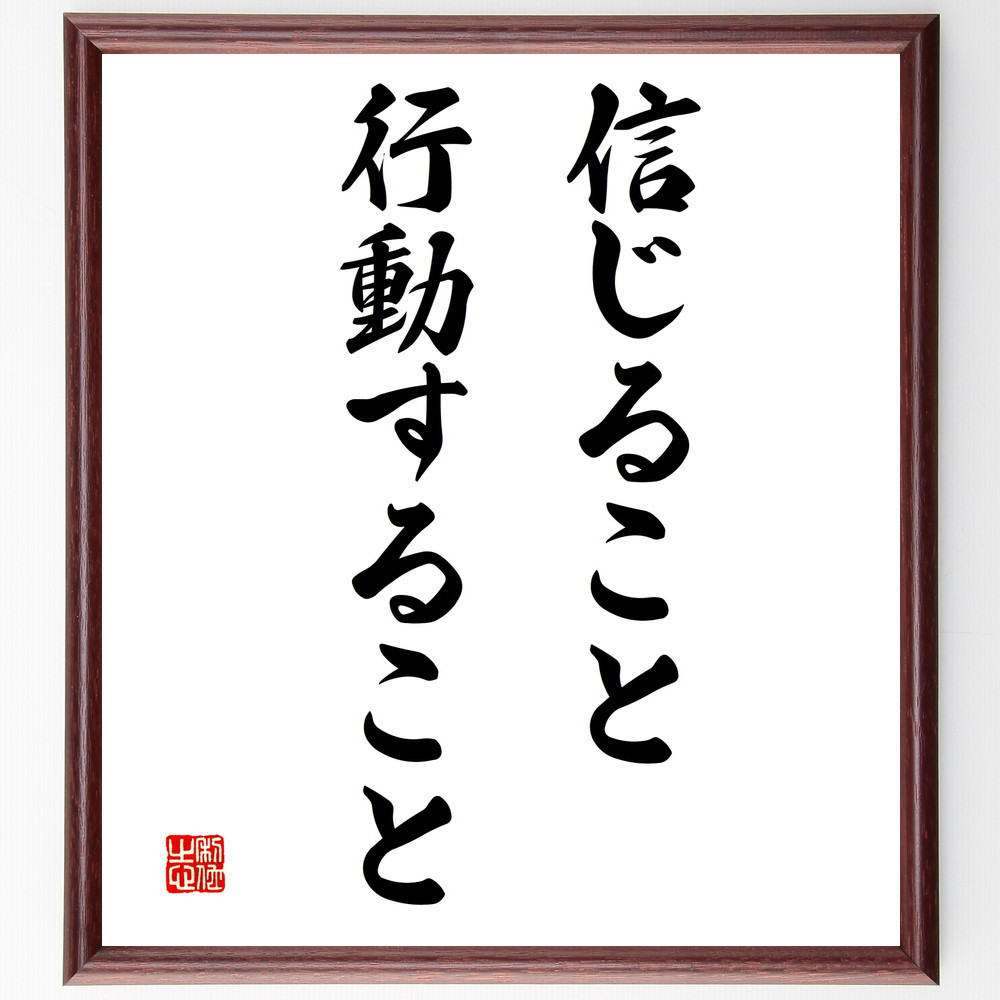 信じること
行動すること